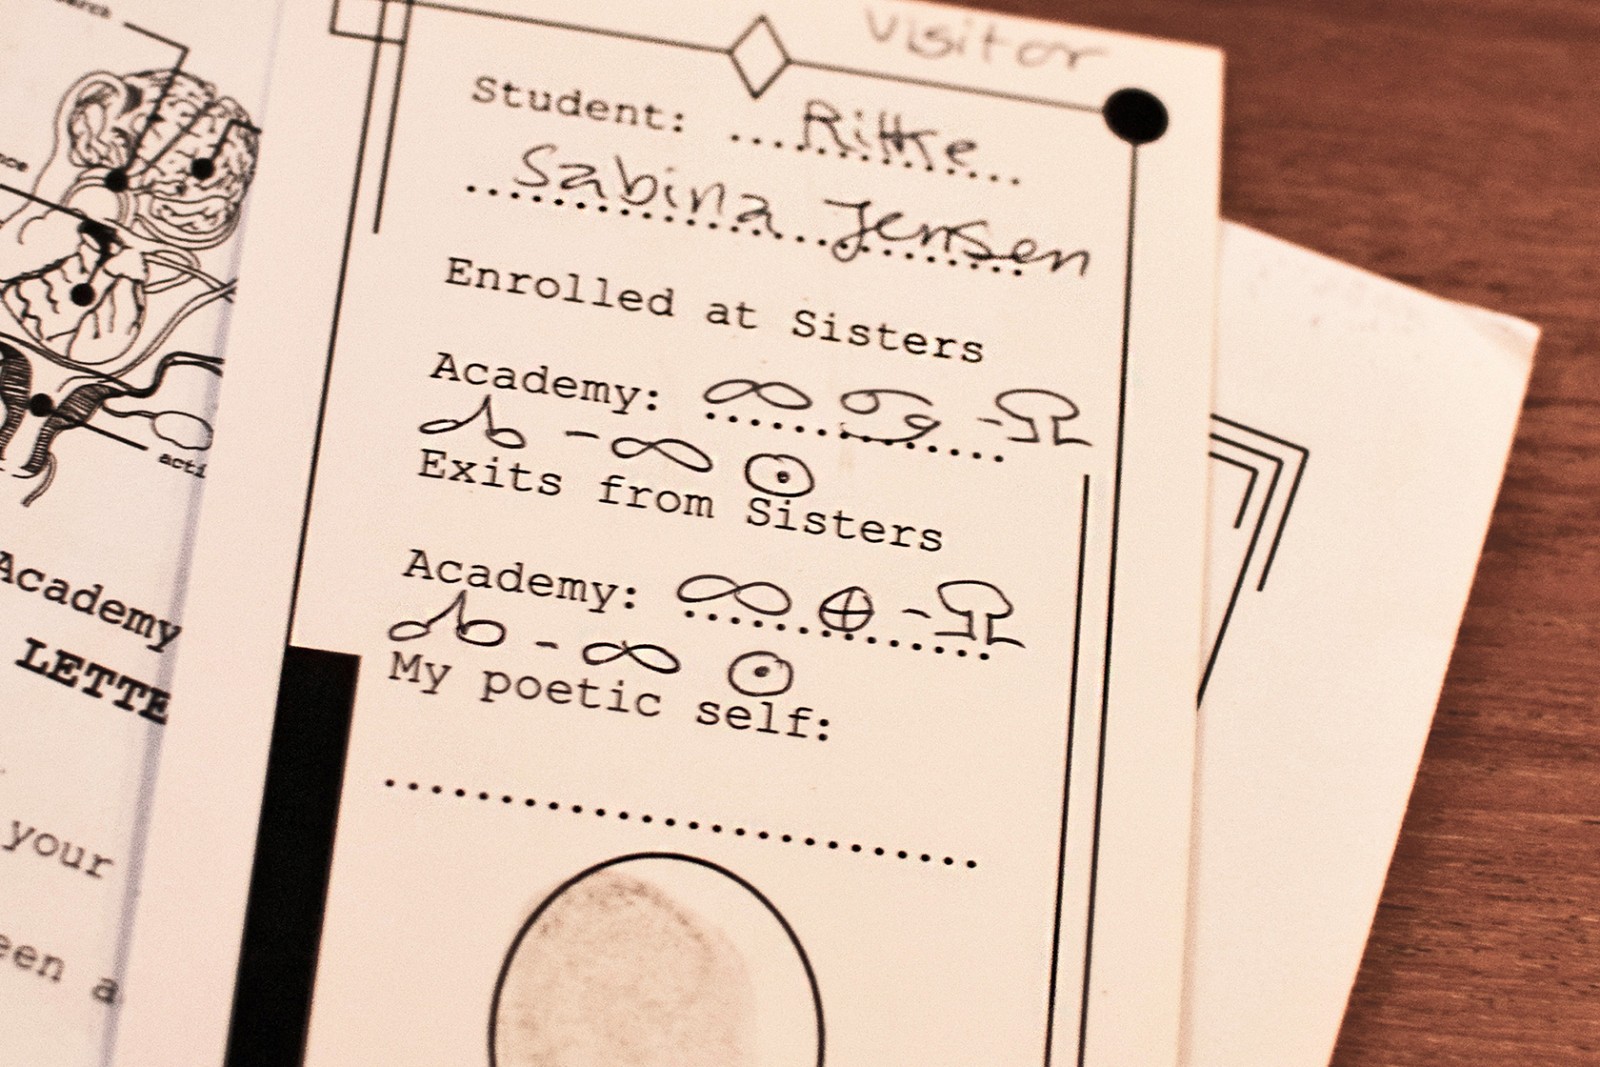 Visitor
Student: Ritke
Sabina Jensen
Enrolled at Sisters
Academy:
Exits from Sisters
Academy:
My poetic self:
Academy
LETTE
your
een a
acti